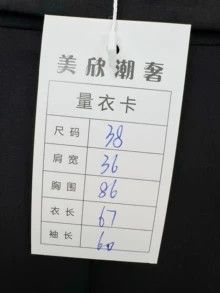 美欣潮奢
量衣卡
尺码 38
肩宽 36
胸围 86
衣长 67
袖长 60